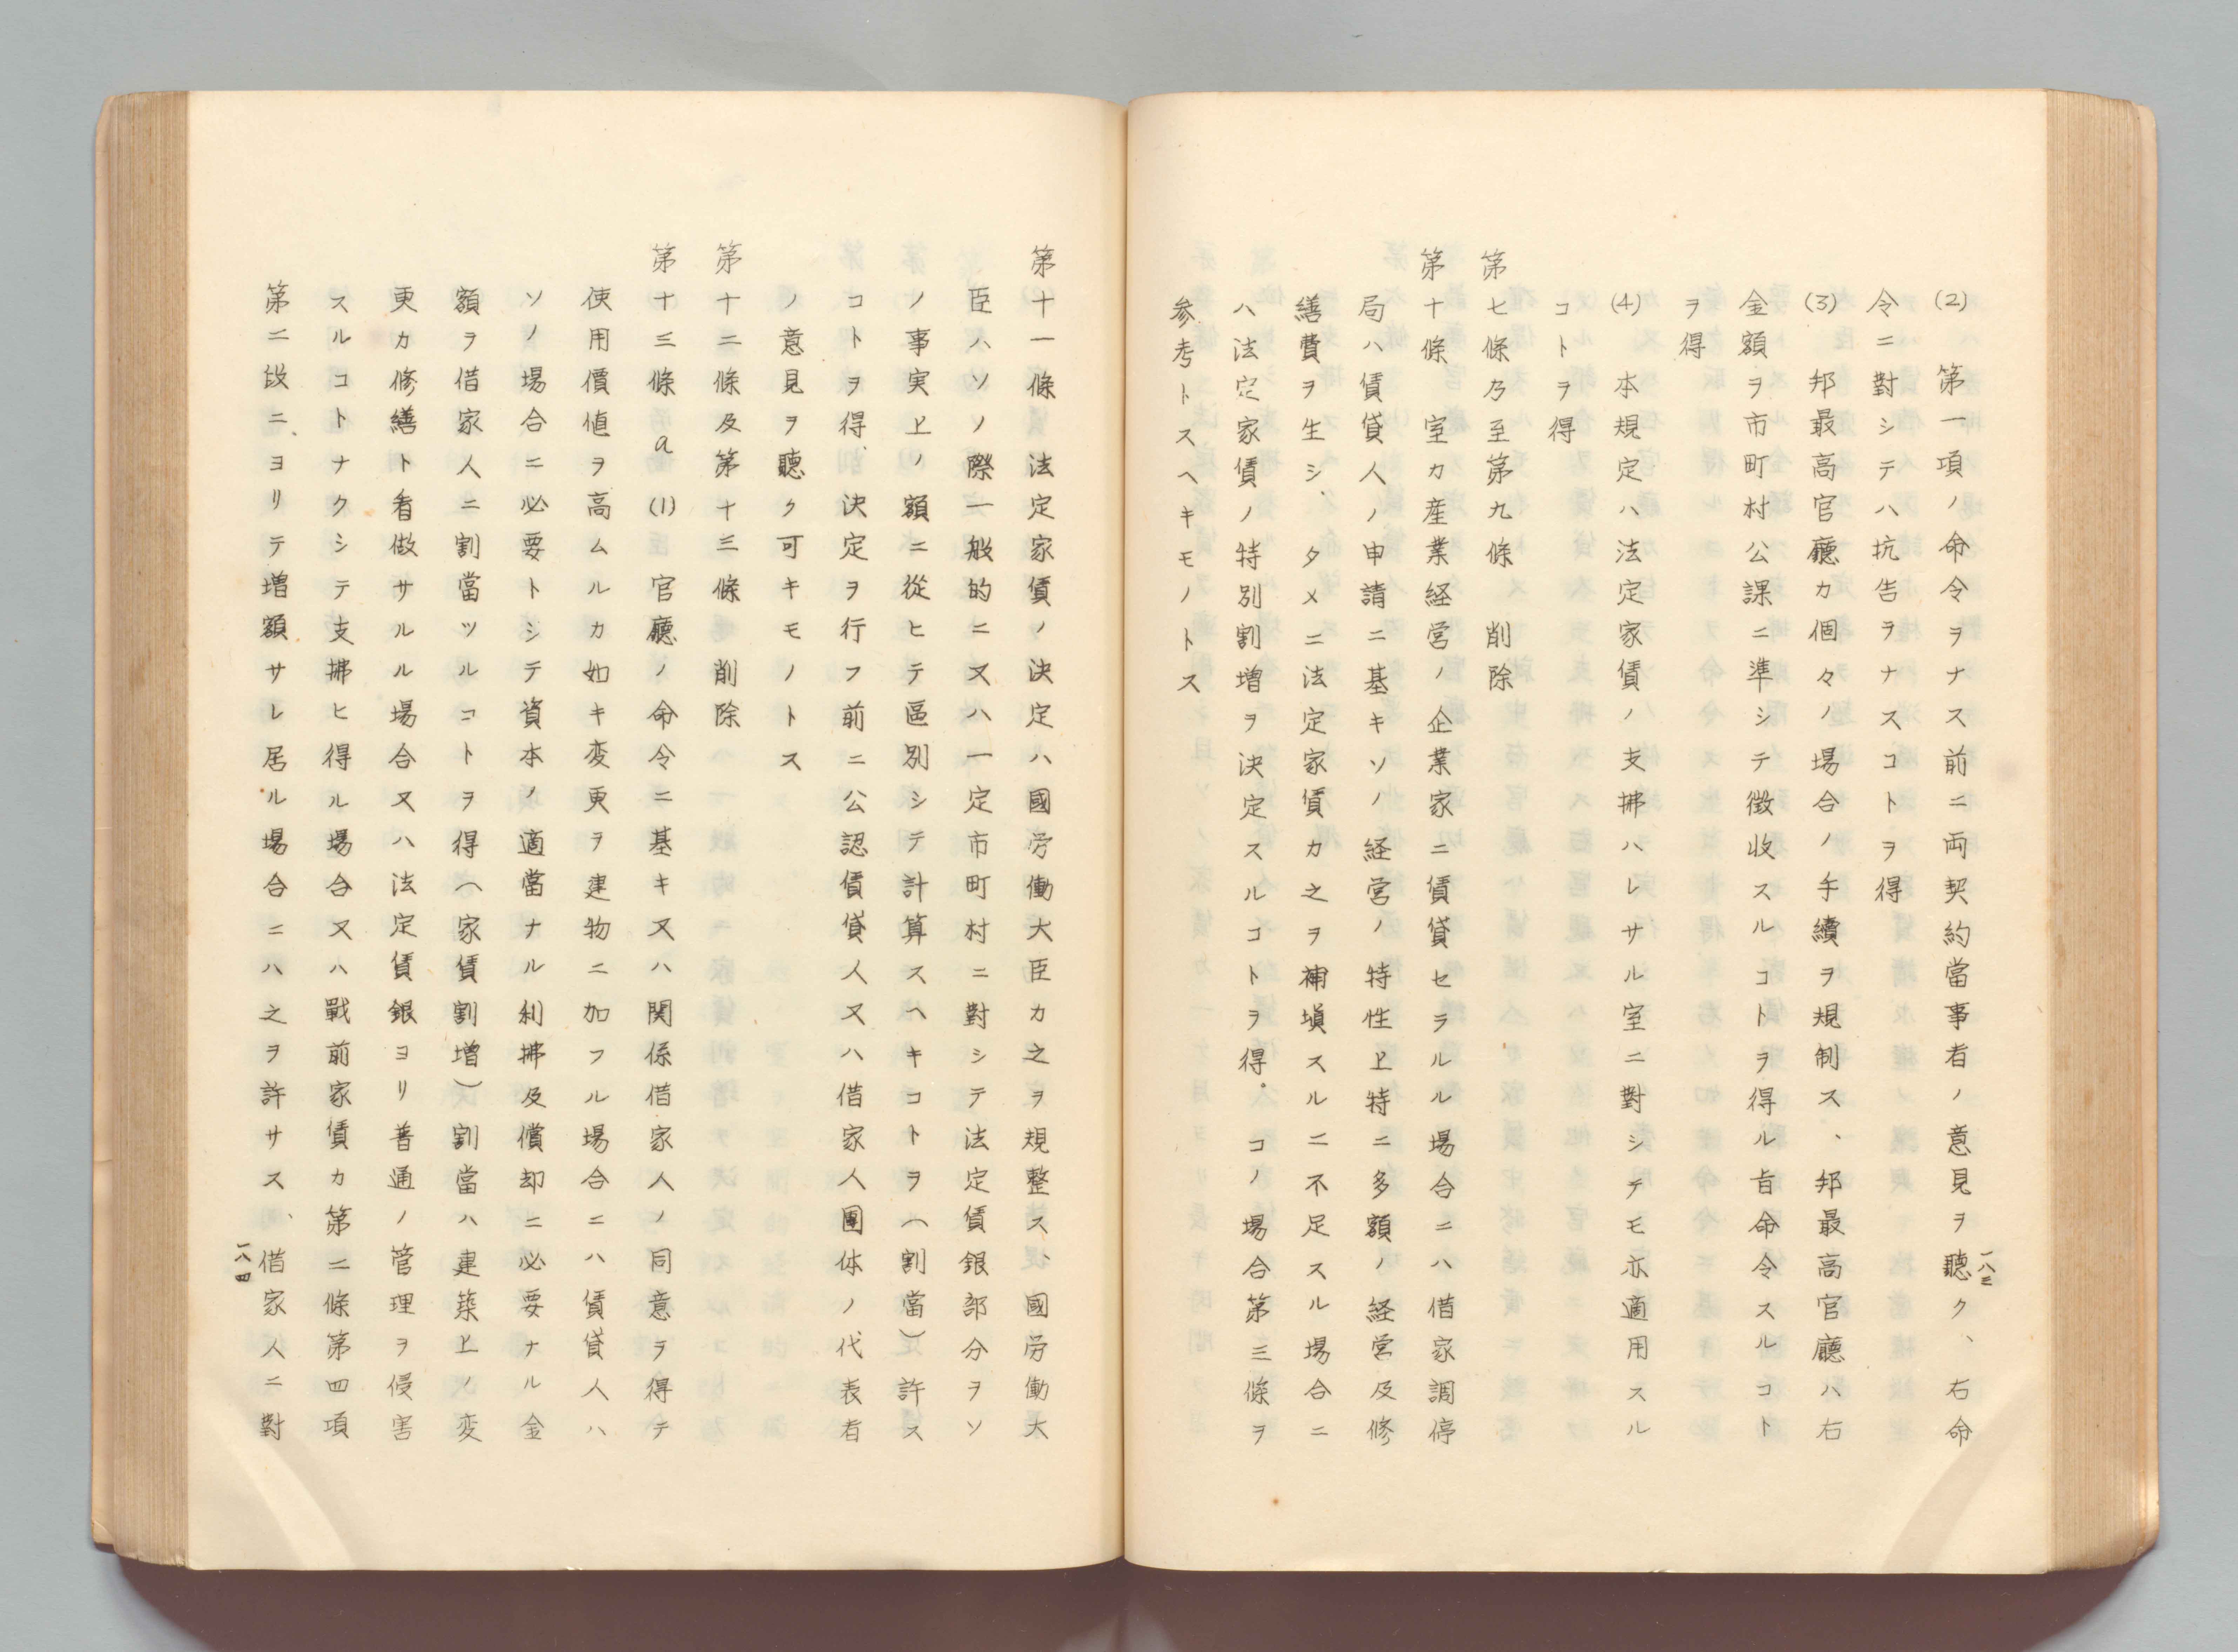 (2) 第一項ノ命令ヲナス前ニ両契約當事者ノ意見ヲ聽ク、右命
令ニ對シテハ抗告ヲナスコトヲ得
(3) 邦最高官廳カ個々ノ場合ノ手續ヲ規制ス、邦最高官廳ハ右
金額ヲ市町村公課ニ準シテ徴收スルコトヲ得ル旨命令スルコト
ヲ得
(4) 本規定ハ法定家賃ノ支拂ハレサル室ニ對シテモ亦適用スル
コトヲ得
第七條乃至第九條 削除
第十條 室カ産業経営ノ企業家ニ賃貸セラルル場合ニハ借家調停
局ハ賃貸人ノ申請ニ基キソノ経営ノ特性上特ニ多額ノ経営及修
繕費ヲ生シ、タメニ法定家賃カ之ヲ補塡スルニ不足スル場合ニ
ハ法定家賃ノ特別割増ヲ決定スルコトヲ得。コノ場合第三條ヲ
参考トスヘキモノトス
一八三
第十一條 法定家賃ノ決定ハ國労働大臣カ之ヲ規整ス、國労働大
臣ハソノ際一般的ニ又ハ一定市町村ニ對シテ法定賃銀部分ヲソ
ノ事実上ノ額ニ從ヒテ區別シテ計算スヘキコトヲ（割當）許ス
コトヲ得、決定ヲ行フ前ニ公認賃貸人又ハ借家人團体ノ代表者
ノ意見ヲ聽ク可キモノトス
第十二條及第十三條 削除
第十三條a (1) 官廳ノ命令ニ基キ又ハ関係借家人ノ同意ヲ得テ
使用價値ヲ高ムルカ如キ変更ヲ建物ニ加フル場合ニハ賃貸人ハ
ソノ場合ニ必要トシテ資本ノ適當ナル利拂及償却ニ必要ナル金
額ヲ借家人ニ割當ツルコトヲ得（家賃割増）割當ハ建築上ノ変
更カ修繕ト看做サルル場合又ハ法定賃銀ヨリ普通ノ管理ヲ侵害
スルコトナクシテ支拂ヒ得ル場合又ハ戰前家賃カ第二條第四項
第二段ニヨリテ増額サレ居ル場合ニハ之ヲ許サス、借家人ニ對
一八四